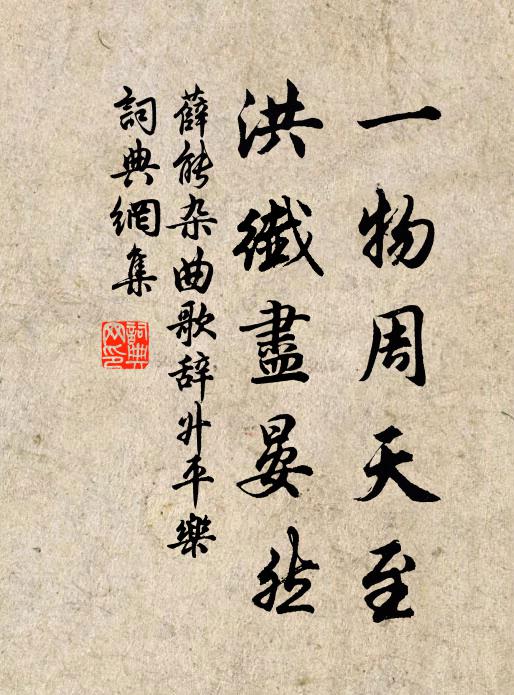 一物周天至
洪纖盡晏然
薛能杂曲歌辞升平樂
詞典網集
詞典網印